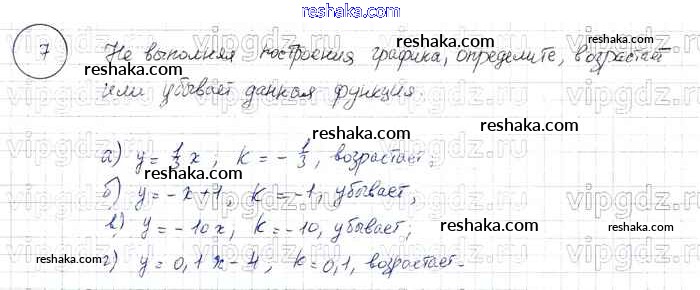 reshaka.com
7 Не выполняя построения графика, определите, возрастает
или убывает данная функция.
reshaka.com
reshaka.com
reshaka.com
а) y = 1/3 x ; к = - 1/3 , возрастает;
reshaka.com
б) y = -x+1, к = -1, убывает,
reshaka.com
в) y = -10x, к = -10, убывает;
reshaka.com
reshaka.com
г) y = 0,1x - 4; к = 0,1, возрастает.
reshaka.com